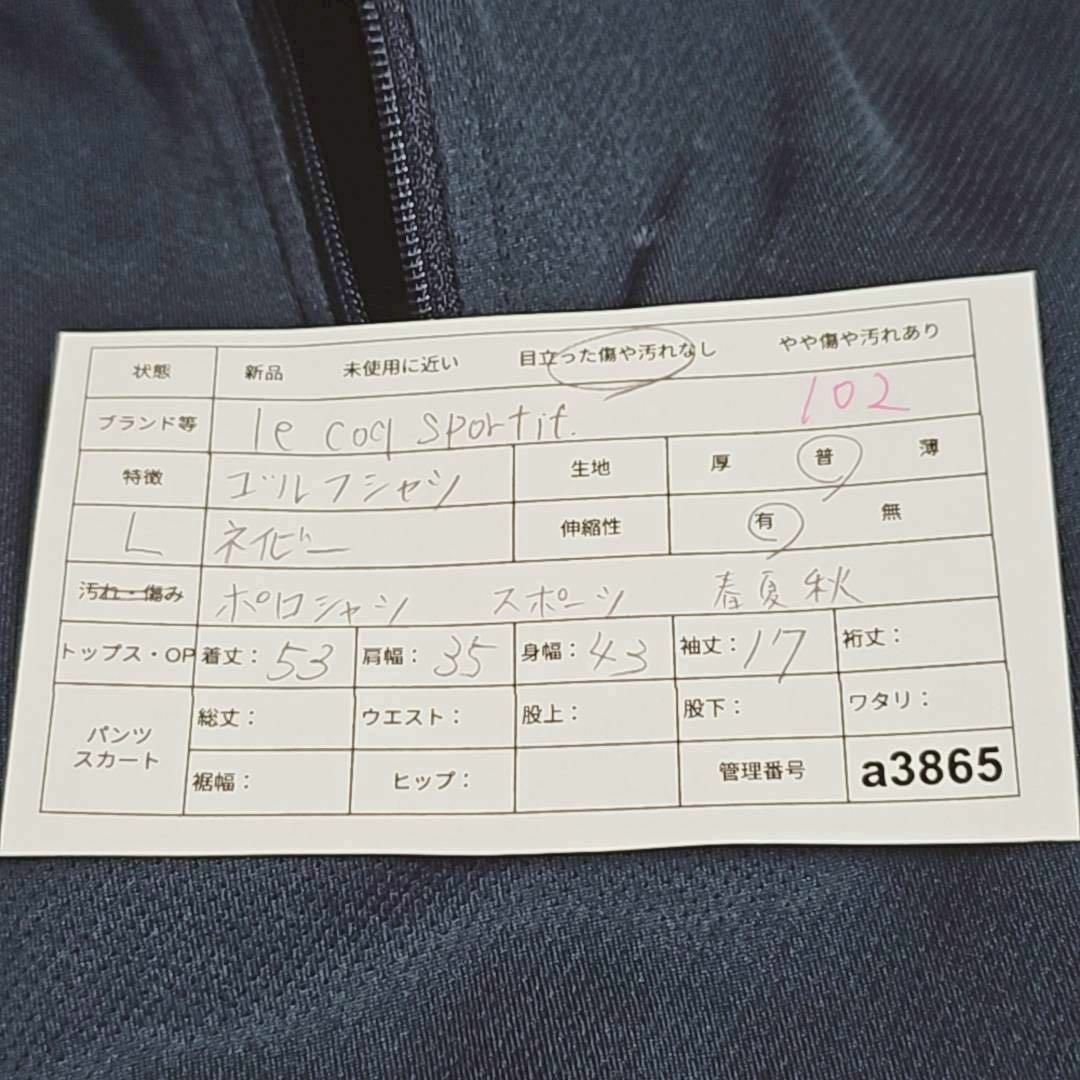 状態 新品 未使用に近い 目立った傷や汚れなし やや傷や汚れあり
ブランド等 le coq sportif. 102
特徴 ゴルフシャツ 生地 厚 普 薄
L ネイビー 伸縮性 有 無
汚れ・傷み ポロシャツ スポーツ 春夏秋
トップス・OP 着丈：53 肩幅：35 身幅：43 袖丈：17 裄丈：
パンツ スカート 総丈： ウエスト： 股上： 股下： ワタリ：
裾幅： ヒップ： 管理番号 a3865